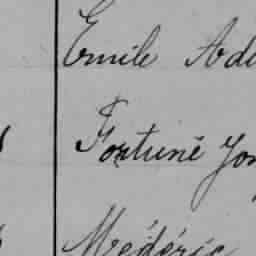 Emile Ad
Fortuné Jo
Médéric